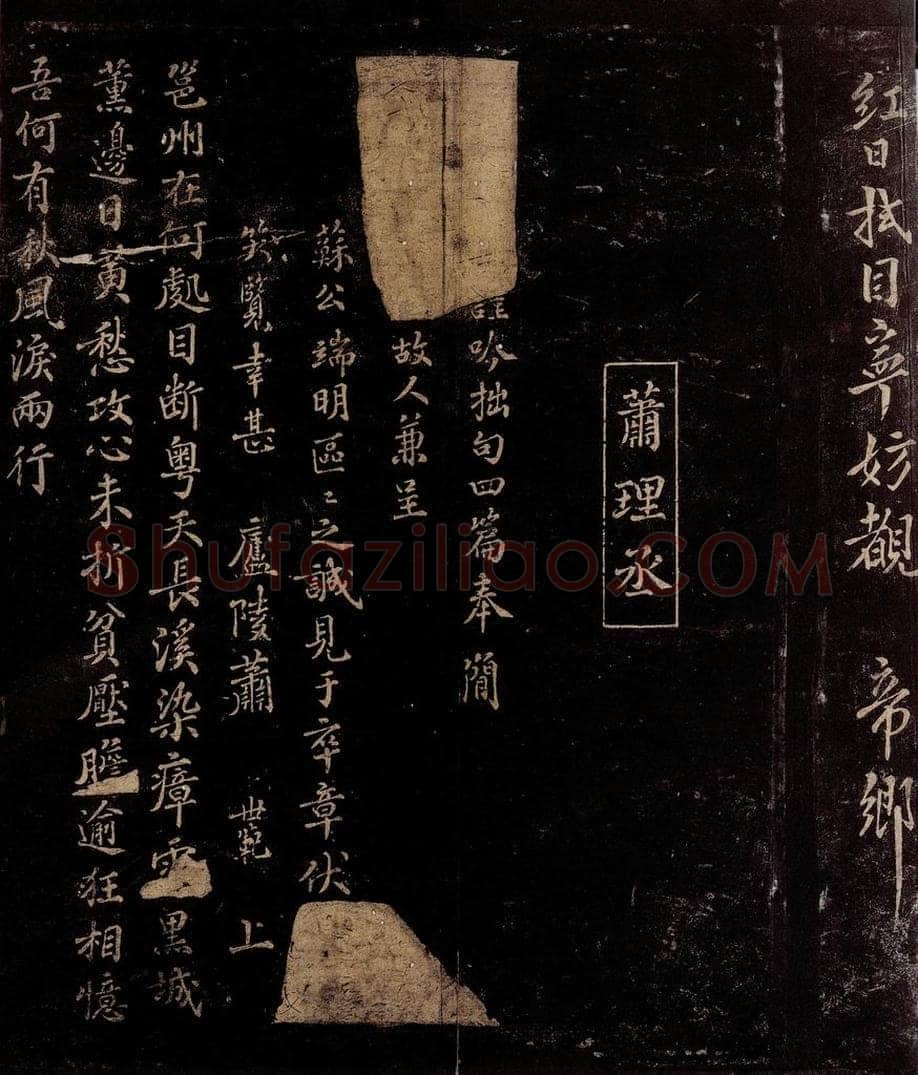 紅日拭目寧妨觀 帝鄉
蕭理丞
吟拙句四篇奉簡
故人兼呈
蘇公端明區〻之誠見于卒章伏
覽幸甚 廬陵蕭 世範 上
邕州在何處目斷粵天長溪染瘴雲黑城
薰邊日黃愁攻心未折貧壓膽逾狂相憶
吾何有秋風淚兩行
Shufaziliao.COM